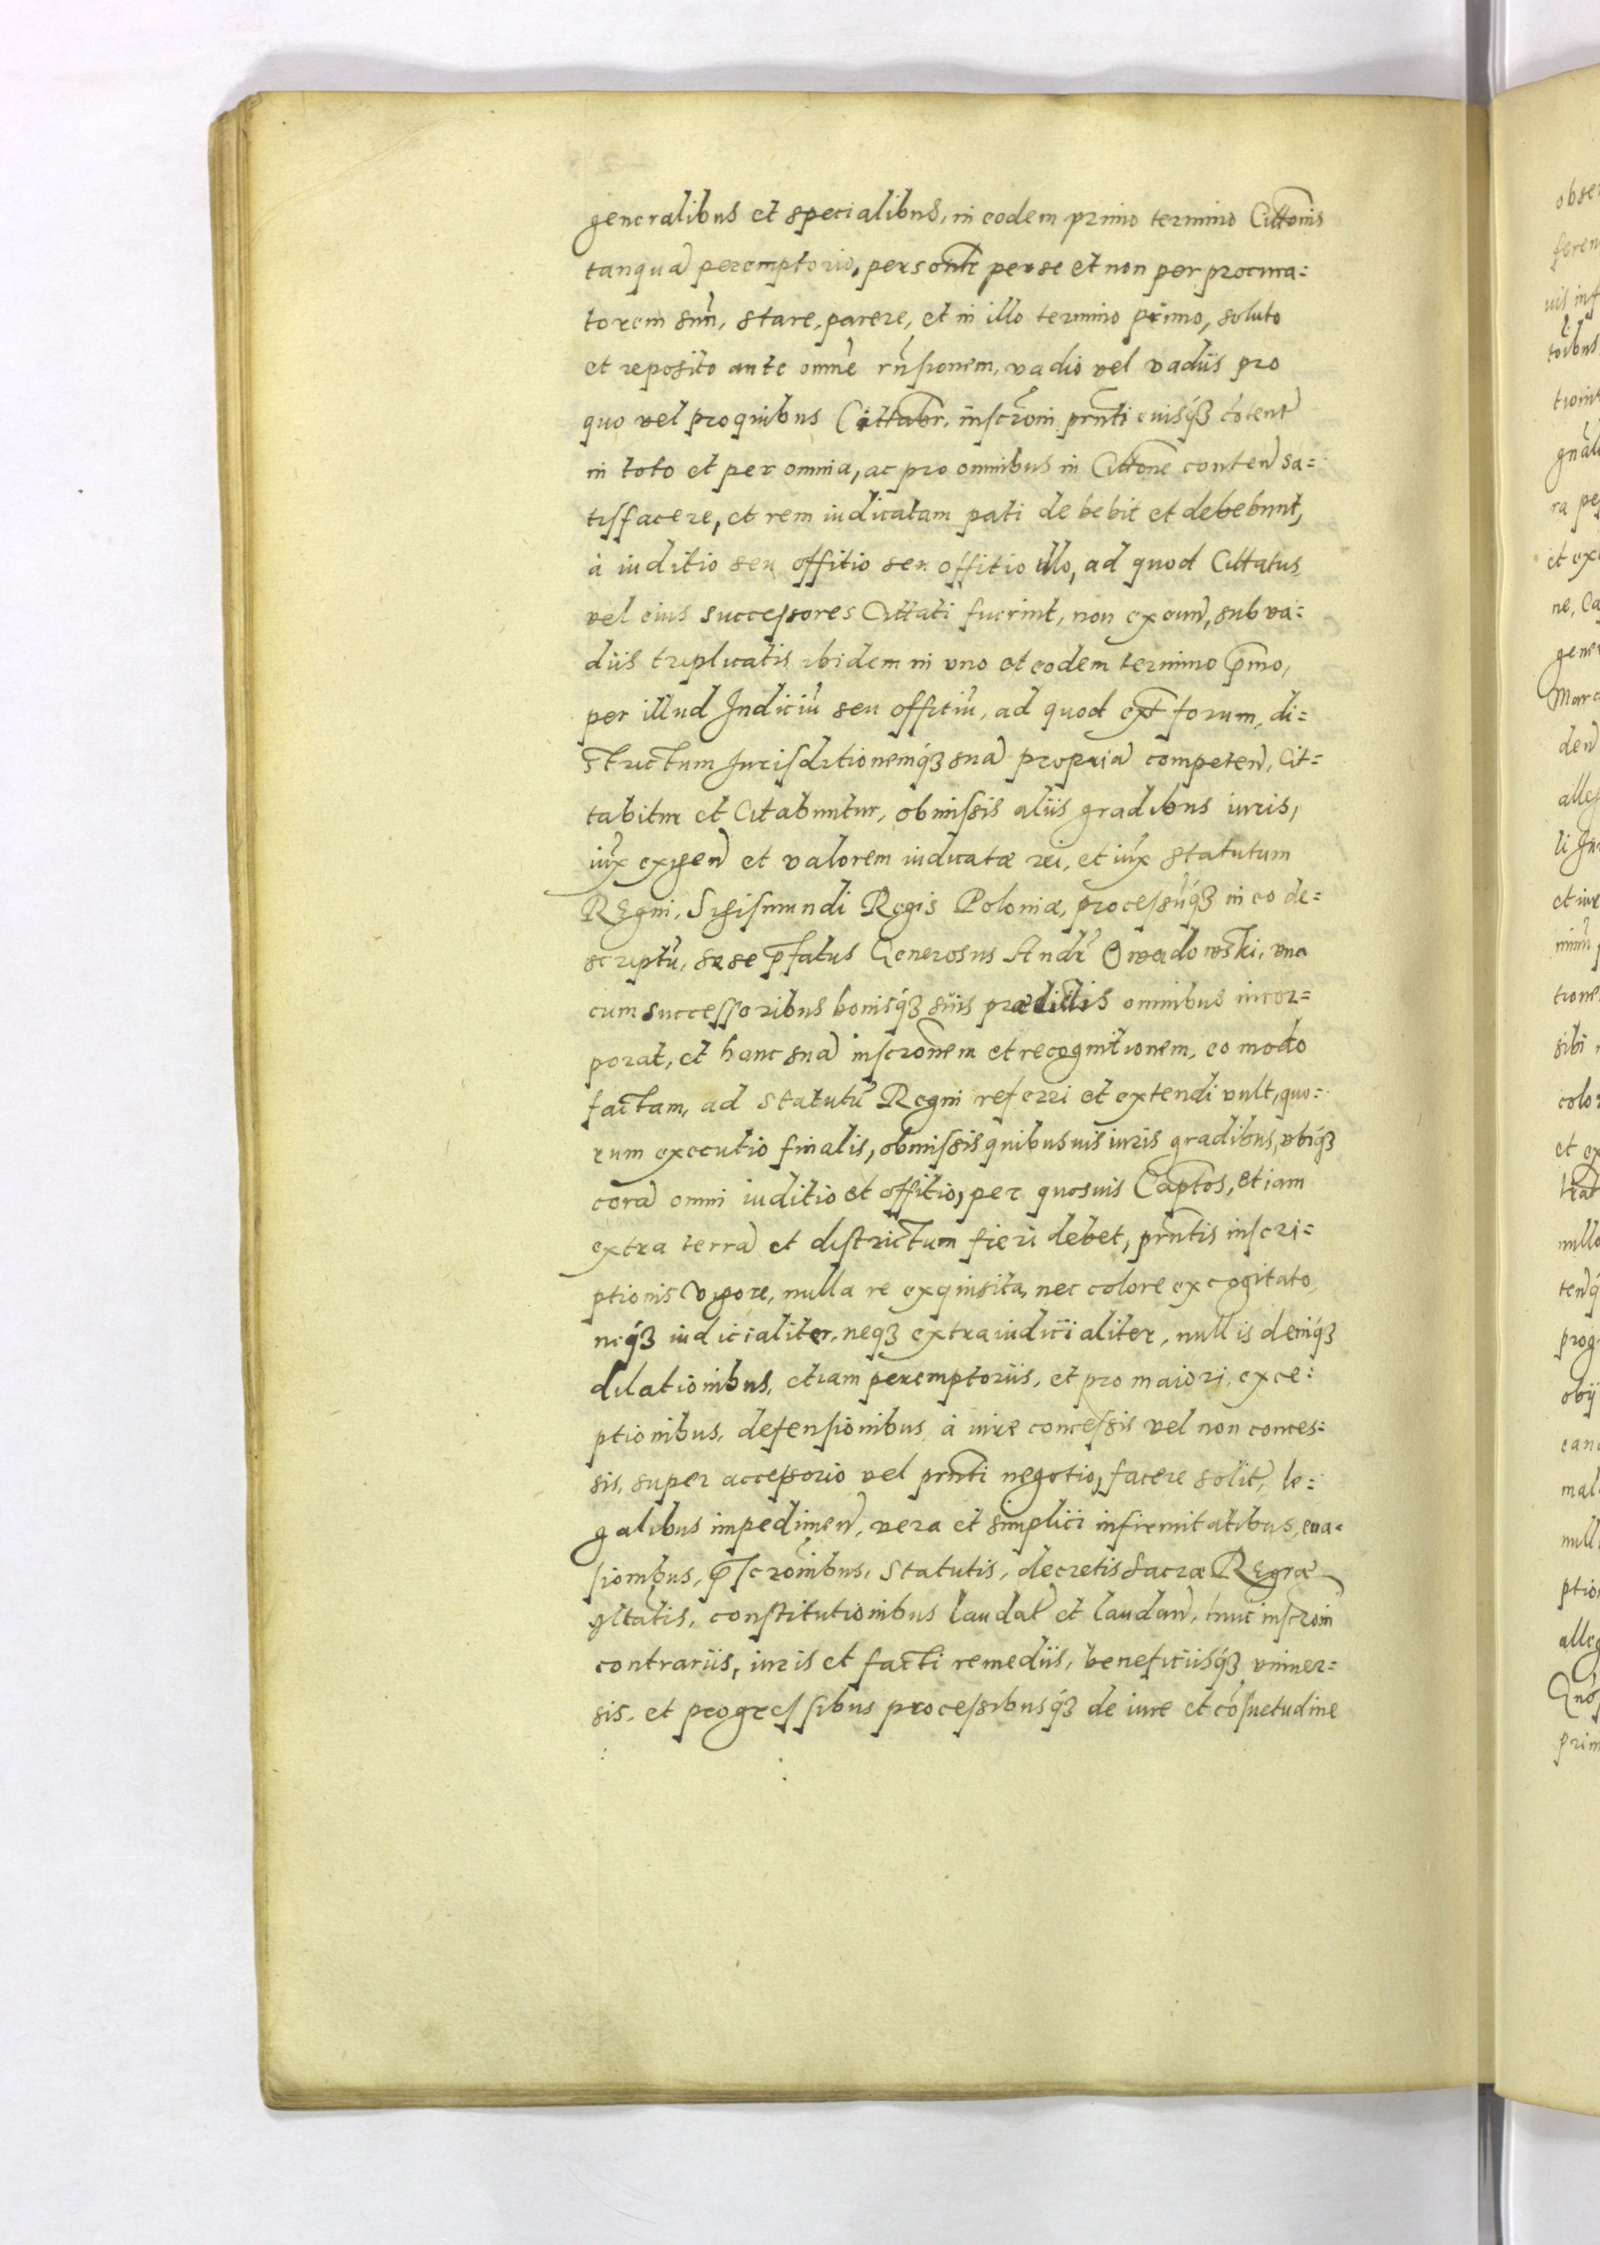 generalibus et specialibus, in eodem primo termino Cittõnis
tanquã peremptorio, personlr per se et non per procura=
torem suũ, stare, parere, et in illo termino primo, soluto
et reposito ante omnẽ rñsionem, vadio vel vadiis pro
quo vel pro quibus Cittabr, inscrõni prñti eiusq́ʒ cõtent
in toto et per omnia, ac pro omnibus in Cittõne conten sa=
tisfacere, et rem iudicatam pati debebit et debebunt,
à iuditio seu offitio seu offitio illo, ad quod Cittatus
vel eius successores Cittati fuerint, non exeun, sub va=
diis triplicatis ibidem in vno et eodem termino p̃mo,
per illud Iudiciũ seu offitiũ, ad quod ext forum, di=
strictum Iurisditionemq́ʒ suã propriã competen, Cit=
tabitur et Citabuntur, obmissis aliis gradibus iuris,
iux̃ exigen et valorem iudicatæ rei, et iux̃ statutum
REgni, Sigismundi Regis Poloniæ, processũq́ʒ in eo de=
scriptũ, sese p̃fatus Generosus Andr̃ Owadowski, vna
cum successoribus bonisq́ʒ suis prædictis omnibus incor=
porat, et hanc suã inscrõnem et recognitionem, eo modo
factam, ad statutũ Regni referri et extendi vult, quo=
rum executio finalis, obmissis quibusuis iuris gradibus, vbiq́ʒ
corã omni iuditio et offitio, per quosuis Captos, etiam
extra terrã et districtum fieri debet, prñtis inscri=
ptionis vigore, nulla re exquisita, nec colore excogitato,
neq́ʒ iudicialiter, neqʒ extraiudicialiter, nullis deniq́ʒ
dilationibus, etiam peremptoriis, et pro maiori, exce=
ptionibus, defensionibus à iure concessis vel non conces=
sis, super accessorio vel prñti negotio, facere solit, le=
galibus impedimen, vera et simplici infirmitatibus, eua=
sionibus, p̃scrõnibus, statutis, decretis Sacræ REgræ
Mtãtis, constitutionibus laudat et laudan, huic inscrõni
contrariis, iuris et facti remediis, beneficiisq́ʒ vniuer=
sis, et progressibus processibusq́ʒ de iure et cõsuetudine